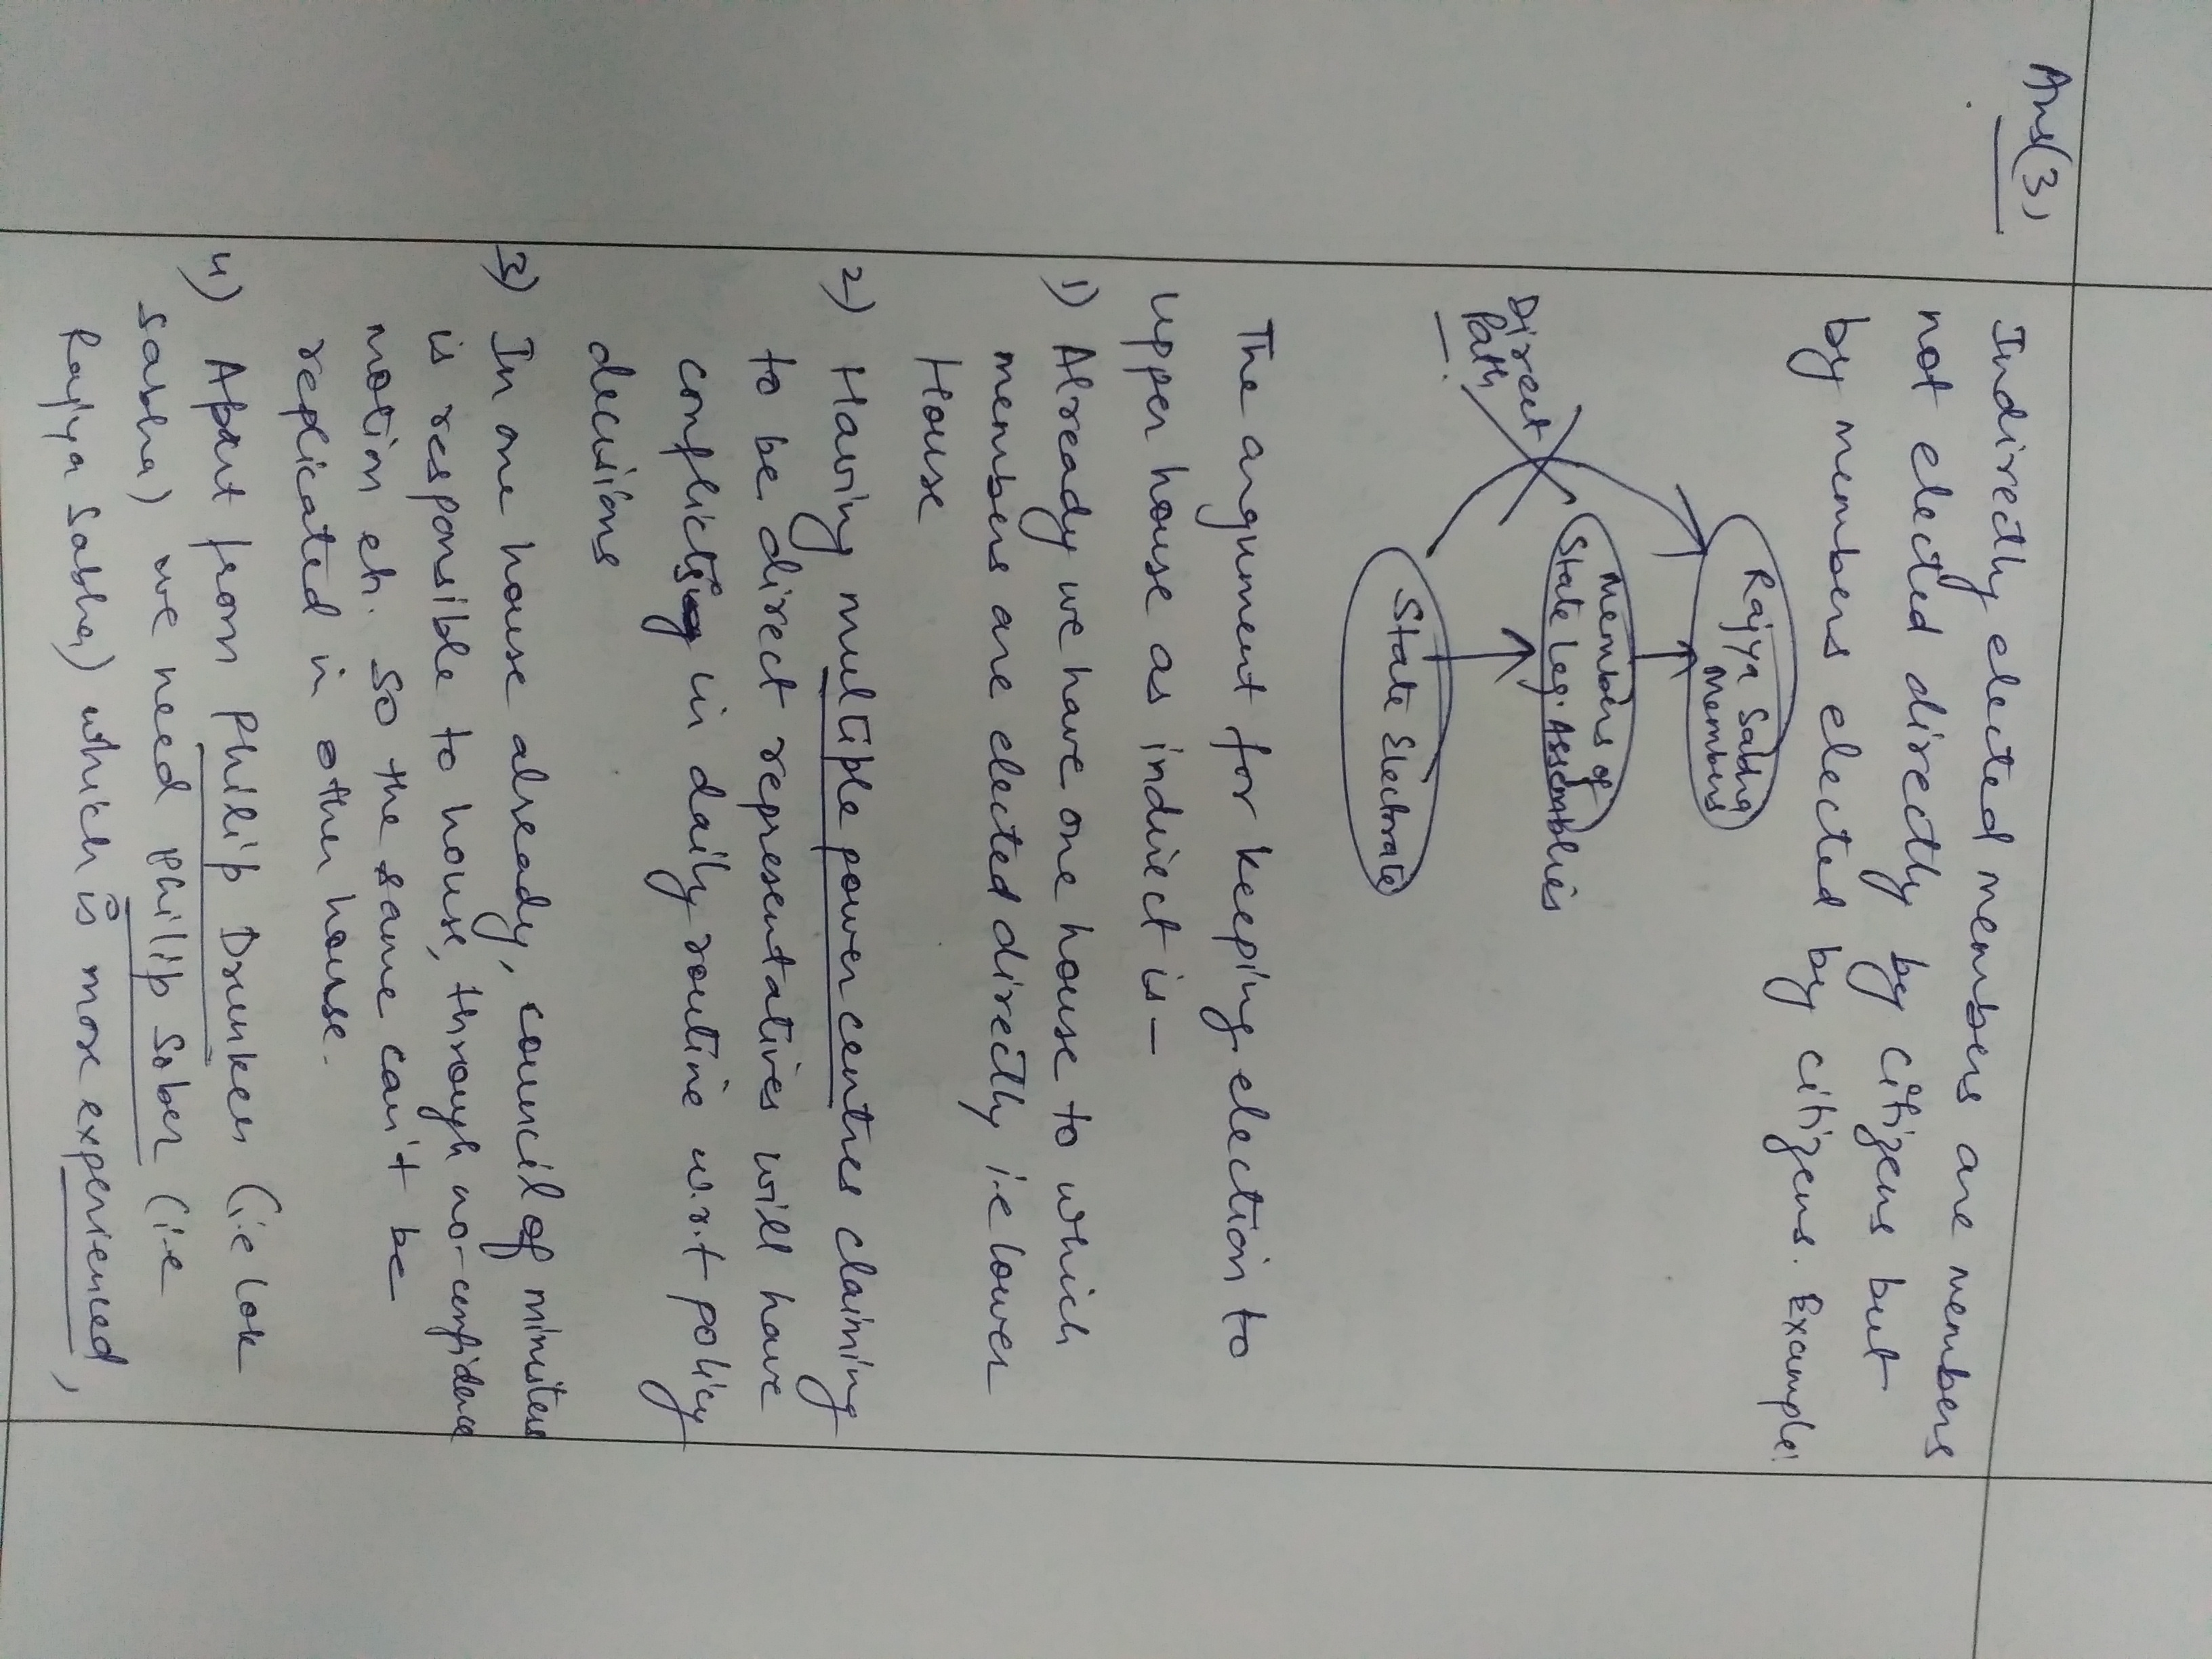 Ans(3)
Indirectly elected members are members
not elected directly by citizens but
by members elected by citizens. Example:
Rajya Sabha
Members
Members of
State Leg. Assemblies
Direct
Path
State Electorate
The argument for keeping election to
upper house as indirect is –
1) Already we have one house to which
members are elected directly i.e lower
House
2) Having multiple power centres claiming
to be direct representatives will have
conflicts in daily routine w.r.t policy
decisions
3) In one house already, council of ministers
is responsible to house, through no-confidence
motion etc. So the same can't be
replicated in other house.
4) Apart from Philip Drunken (i.e Lok
Sabha) we need Philip Sober (i.e
Rajya Sabha) which is more experienced,